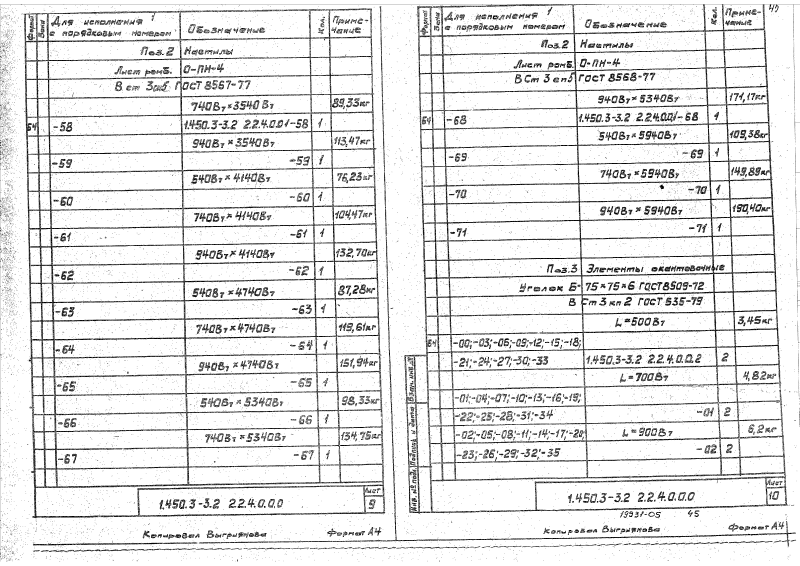 Формат
Зона
Для исполнения 1
с порядковым номером
Обозначение
Кол.
Приме-
чание
Поз.2 Настилы
Лист ромб. О-ПН-4
В ст 3сп5 ГОСТ 8567-77
740Вт×3540Вт 89,33кг
БЧ -58 1.450.3-3.2 2.2.4.0.01-58 1
940Вт×3540Вт 113,47кг
-59 -59 1
540Вт×4140Вт 76,23кг
-60 -60 1
740Вт×4140Вт 104,47кг
-61 -61 1
940Вт×4140Вт 132,70кг
-62 -62 1
540Вт×4740Вт 87,28кг
-63 -63 1
740Вт×4740Вт 119,61кг
-64 -64 1
940Вт×4740Вт 151,94кг
-65 -65 1
540Вт×5340Вт 98,33кг
-66 -66 1
740Вт×5340Вт 134,75кг
-67 -67 1
1.450.3-3.2 2.2.4.0.0.0
Лист
9
Копировал Выгриянова Формат А4
Формат
Зона
Для исполнения 1
с порядковым номером
Обозначение
Кол.
Приме-
чание
Поз.2 Настилы
Лист ромб. О-ПН-4
В Ст 3 сп5 ГОСТ 8568-77
940Вт×5340Вт 171,17кг
БЧ -68 1.450.3-3.2 2.2.4.0.0.1-68 1
540Вт×5940Вт 109,38кг
-69 -69 1
740Вт×5940Вт 149,89кг
-70 -70 1
940Вт×5940Вт 190,40кг
-71 -71 1
Поз.3 Элементы окантовочные
Уголок Б-75×75×6 ГОСТ8509-72
В Ст 3 кп 2 ГОСТ 535-79
L=500Вт 3,45кг
БЧ -00;-03;-06;-09;-12;-15;-18;
-21;-24;-27;-30;-33 1.450.3-3.2 2.2.4.0.0.2 2
L=700Вт 4,82кг
-01;-04;-07;-10;-13;-16;-19;
-22;-25;-28;-31;-34 -01 2
-02;-05;-08;-11;-14;-17;-20; L=900Вт 6,2кг
-23;-26;-29;-32;-35 -02 2
Инв. № подл. Подпись и дата Взам. инв. №
1.450.3-3.2 2.2.4.0.0.0
Лист
10
19931-05 45
Копировал Выгриянова Формат А4